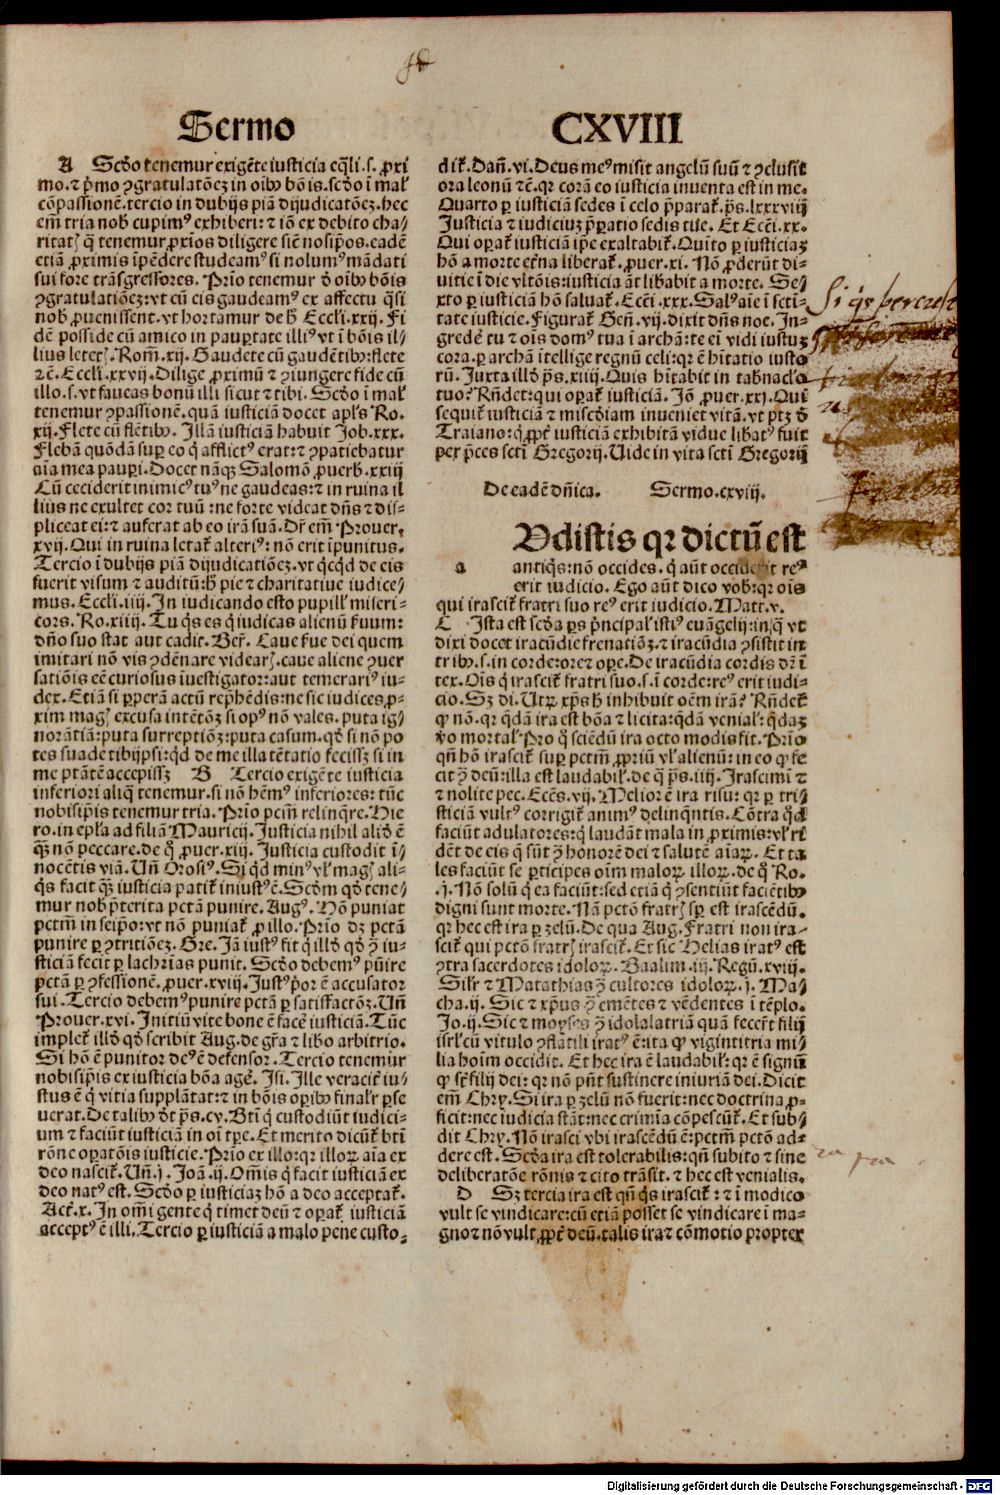 Sermo
CXVIII
A Scd̄o tenemur exigēte iusticia eq̄li.s. ꝓxi
mo.⁊ p̄mo ꝯgratulatōeꝫ in oībꝰ bōis.scd̄o ī mal̛
cōpassionē.tercio in dubijs piā dijudicatōeꝫ.hec
em̄ tria nob̄ cupimꝰ exhiberi:⁊ iō ex debito cha/
ritatꝭ q̄ tenemur ꝓxīos diligere sic̄ nosip̄os.eadē
etiā ꝓximis īpēdere studeamꝰ si nolumꝰ mādati
sui fore trāsgressores. Prīo tenemur d̄ oībꝰ bōis
ꝯgratulatiōeꝫ:vt cū eis gaudeamꝰ ex affectu q̄si
nob̄ ꝓuenissent.vt hortamur de h̄ Eccl̄i.xxij. Fi
dē posside cū amico in paup̄tate illiꝰ vt ī bōis il/
lius leterꝭ. Rom̄.xij. Gaudete cū gaudētibꝰ:flete
⁊c̄. Eccl̄i.xxvij. Dilige ꝓximū ⁊ ꝯiungere fide cū
illo.s.vt faueas bonū illi sicut ⁊ tibi. Scd̄o ī mal̛
tenemur ꝯpassionē.quā iusticiā docet apl̄s Ro.
xij. Flete cū flētibꝰ. Illā iusticiā habuit Job.xxx.
Flebā quōdā sup̄ eo q̄ afflictꝰ erat:⁊ ꝯpatiebatur
aīa mea paup̄i. Docet nāqꝫ Salomō ꝓuerb̄.xxiij
Cū ceciderit inimicꝰ tuꝰ ne gaudeas:⁊ in ruina il
lius ne exultet cor tuū:ne forte videat dn̄s ⁊ dis/
pliceat ei:⁊ auferat ab eo irā suā. Dr̄ em̄ Prouer.
xvij. Qui in ruina letat̛ alteriꝰ: nō erit īpunitus.
Tercio ī dubijs piā dijudicatiōeꝫ.vt q̄cq̄d de eis
fuerit visum ⁊ auditū:h̄ pie ⁊ charitatiue iudice/
mus. Eccl̄i.iiij. In iudicando esto pupill̛ miseri-
cors. Ro.xiiij. Tu q̄s es q̄ iudicas alienū s̄uum:
dn̄o suo stat aut cadit. Ber̄. Caue s̄ue dei quem
imitari nō vis ꝯdēnare videarꝭ.caue aliene ꝯuer
satiōis eē curiosus īuestigator:aut temerariꝰ iu-
dex. Etiā si ꝑperā actū rep̄hēdis:ne sic iudices ꝓ-
xim magꝭ excusa intētōꝫ si opꝰ nō vales. puta ig/
norātiā:puta surreptiōꝫ:puta casum.qd̄ si nō po
tes suade tibijpsi:q̄d de me illa tētatio fecissꝫ si in
me ptātē accepissꝫ B Tercio exigēte iusticia
inferiori aliq̄ tenemur.si nō hēmꝰ inferiores: tūc
nobisip̄is tenemur tria. Prīo pcm̄ relinq̄re. Hie
ro.in epl̄a ad filiā Mauricij. Justicia nihil aliō ē
q̄ꝫ nō peccare.de q̄ ꝓuer.xiij. Justicia custodit ī/
nocētis viā. Un̄ Orosiꝰ. Si q̄d minꝰ vl̛ magꝭ ali-
q̄s facit q̄ꝫ iusticia patit̛ iniustꝰ ē. Scd̄m qd̄ tene/
mur nob̄ p̄terita pctā punire. Augꝰ. Nō puniat
pctm̄ in seipō:vt nō puniat̛ ꝑ illo. Prīo dꝫ pctā
punire ꝑ ꝯtritiōeꝫ. Gre. Jā iustꝰ fit q̄ illō qd̄ ꝯ̄ iu-
sticiā fecit ꝑ lachrīas punit. Scd̄o debemꝰ pūire
pctā ꝑ ꝯfessionē.ꝓuer.xviij. Justꝰ p̄or ē accusator
sui. Tercio debemꝰ punire pctā ꝑ satisfactōꝫ. Un̄
Prouer.xvi. Initiū vite bone ē facē iusticiā. Tūc
implet̛ illō qd̄ scribit Aug. de gr̄a ⁊ libo arbitrio.
Si hō ē punitor deꝰ ē defensor. Tercio tenemur
nobisip̄is ex iusticia bōa agē. Isi. Ille veracit̛ iu/
stus ē q̄ vitia supplātat:⁊ in bōis oꝑibꝰ finalr̄ ꝑse
uerat. De talibꝰ d̄t ps̄.cv. Bt̄i q̄ custodiūt iudici-
um ⁊ faciūt iusticiā in oī tꝑe. Et merito dicūt̛ bt̄i
rōne oꝑatōis iusticie. Prīo ex illo:qr illoꝝ aīa ex
deo nascit̛. Un̄.j. Joā.ij. Om̄is q̄ facit iusticiā ex
deo natꝰ est. Scd̄o ꝑ iusticiaꝫ hō a deo acceptat̛.
Act̄.x. In om̄i gente q̄ timet deū ⁊ oꝑat̛ iusticiā
acceptꝰ ē illi. Tercio ꝑ iusticiā a malo pene custo-
dit̛. Dan̄.vi. Deus meꝰ misit angelū suū ⁊ ꝯclusit
ora leonū ⁊c̄.qr corā eo iusticia inuenta est in me.
Quarto ꝑ iusticiā sedes ī celo p̄parat̛.ps̄.lxxxviij
Justicia ⁊ iudiciuꝫ p̄ꝑatio sedis tue. Et Eccī.xx.
Qui oꝑat̛ iusticiā ip̄e exaltabit̛. Quīto ꝑ iusticiaꝫ
hō a morte et̄na liberat̛.ꝓuer.xi. Nō ꝓderūt di-
uitie ī die vltōis:iusticia āt libabit a morte. Se/
xto ꝑ iusticiā hō saluat̛. Eccī.xxx. Salꝰ aīe ī scti-
tate iusticie. Figurat̛ Gen̄.vij.dixit dn̄s noe. In-
gredē tu ⁊ oīs domꝰ tua ī archā:te ei vidi iustuꝫ
cora.ꝑ archā ītellige regnū celi:qr ē hītatio iusto
rū. Juxta illō ps̄.xiiij. Quis hītabit in tabn̄aclo
tuo? Rn̄det:qui oꝑat̛ iusticiā. Jō ꝓuer.xxj. Qui
sequit̛ iusticiā ⁊ miscd̄iam inueniet vitā.vt ptꝫ d̄
Traiano:q̄ ꝓpt̄ iusticiā exhibitā vidue libatꝰ fuit
per p̄ces scti Gregorij. Uide in vita scti Gregorij
De eadē dn̄ica. Sermo.cxviij.
Udistis qr dictū est
a antiq̄s:nō occides. q̄ aūt occiderit reꝰ
erit iudicio. Ego aūt dico vob̄:qr oīs
qui irascit̛ fratri suo reꝰ erit iudicio. Matt.v.
C Ista est scd̄a ꝑs p̄ncipal̛ istiꝰ euāgelij:in q̄ vt
dixi docet iracūdie frenatiōꝫ.⁊ iracūdia ꝯsistit in
tribꝰ.s.in corde:ore⁊ oꝑe. De iracūdia cordis dē ī
tex. Oīs q̄ irascit̛ fratri suo.s.ī corde:reꝰ erit iudi-
cio. Sꝫ di. Utꝝ xp̄s h̄ inhibuit oēm irā? Rn̄det̛
ꝙ nō.qr q̄dā ira est bōa ⁊ licita:q̄dā venial̛:q̄daꝫ
v̄o mortal̛ Pro q̄ sciēdū ira octo modis fit. Prīo
qn̄ hō irascit̛ sup̄ pctm̄ ꝓpriū vl̛ alienū: in eo ꝙ fe
cit ꝯ̄ deū:illa est laudabil̛.de q̄ ps̄.iiij. Irascimī ⁊
⁊ nolite pec. Eccēs.vij. Melior ē ira risu: qr ꝑ tri/
sticiā vultꝰ corrigit̛ animꝰ delinq̄ntis. Cōtra q̄d
faciūt adulatores:q̄ laudāt mala in ꝓximis:vl̛ ri
dēt de eis q̄ sūt ꝯ̄ honorē dei ⁊ salutē aīaꝝ. Et ta
les faciūt se ꝑticipes oīm maloꝝ illoꝝ.de q̄ Ro.
.j. Nō solū q̄ ea faciūt:sed etiā q̄ ꝯsentiūt faciētibꝰ
digni sunt morte. Nā pctō fratrꝭ sꝑ est irascēdū.
qr hec est ira ꝑ zelū. De qua Aug. Fratri non ira-
scit̛ qui pctō fratrꝭ irascit̛. Et sic Helias iratꝰ est
ꝯtra sacerdotes idoloꝝ. Baalim.iij. Regū.xviij.
Silr̄ ⁊ Matathias ꝯ̄ cultores idoloꝝ.j. Ma/
cha.ij. Sic ⁊ xp̄us ꝯ̄ emētes ⁊ vēdentes ī tēplo.
Jo.ij. Sic ⁊ moyses ꝯ̄ idolalatriā quā fecer̄t filij
isrl̄ cū vitulo ꝯflātili iratꝰ ē:ita ꝙ vigintitria mi/
lia hoīm occidit. Et hec ira ē laudabil̛: qr ē signū
ꝙ st̄ filij dei: qr nō pn̄t sustinere iniuriā dei. Dicit
em̄ Chry. Si ira ꝑ zelū nō fuerit:nec doctrina ꝓ-
ficit:nec iudicia stāt:nec crimīa cōpescūt̛. Et sub/
dit Chry. Nō irasci vbi irascēdū ē:pctm̄ pctō ad-
dere est. Scd̄a ira est tolerabilis:qn̄ subito ⁊ sine
deliberatōe rōnis ⁊ cito trāsit.⁊ hec est venialis.
D Sꝫ tercia ira est qn̄ q̄s irascit̛:⁊ ī modico
vult se vindicare:cū etiā posset se vindicare ī ma-
gno⁊ nō vult ꝓpt̄ deū.talis ira⁊ cōmotio propter
Digitalisierung gefördert durch die Deutsche Forschungsgemeinschaft - DFG